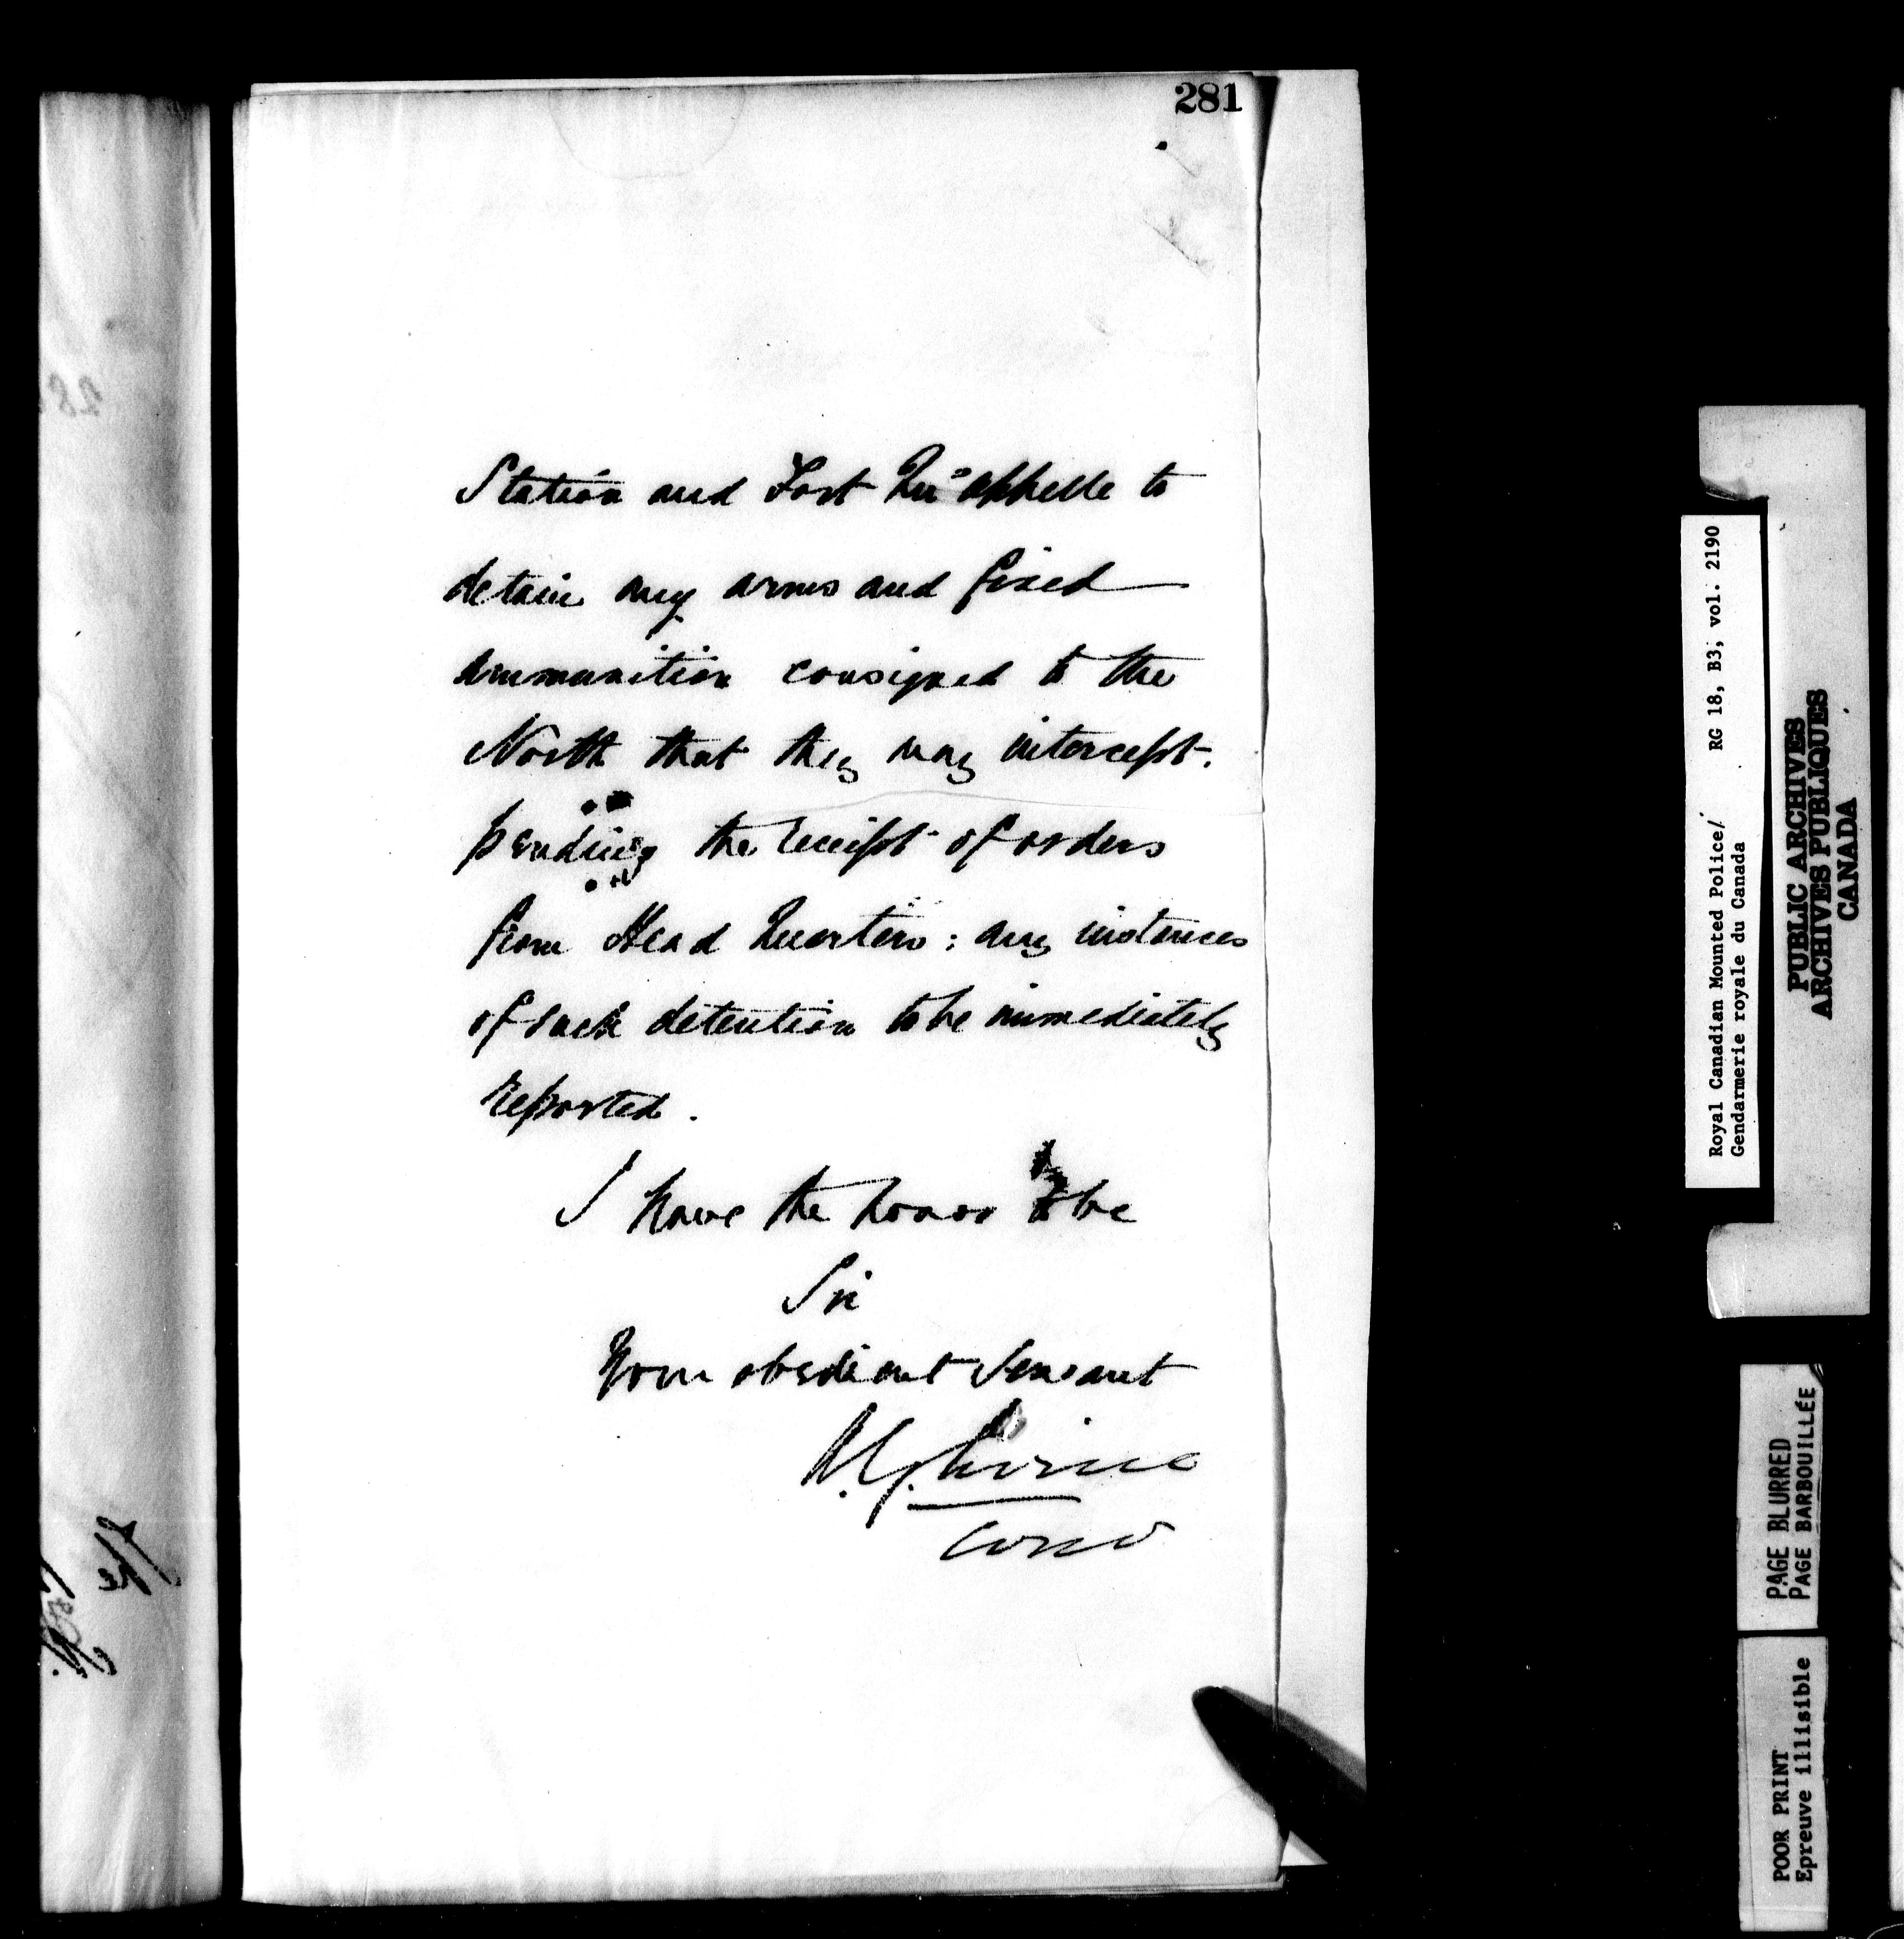 281
Station and Fort Qu'appelle to
detain any arms and fixed
ammunition consigned to the
North that they may intercept.
pending the receipt of orders
from Head Quarters : any instances
of such detention to be immediately
reported.
I have the honor to be
Sir
Your obedient Servant
A.G. Irvine
The
Royal Canadian Mounted Police/ RG 18, B3, vol. 2190
Gendarmerie royale du Canada
PUBLIC ARCHIVES
ARCHIVES PUBLIQUES
CANADA
PAGE BLURRED
PAGE BARBOUILLÉE
POOR PRINT
Epreuve illisible